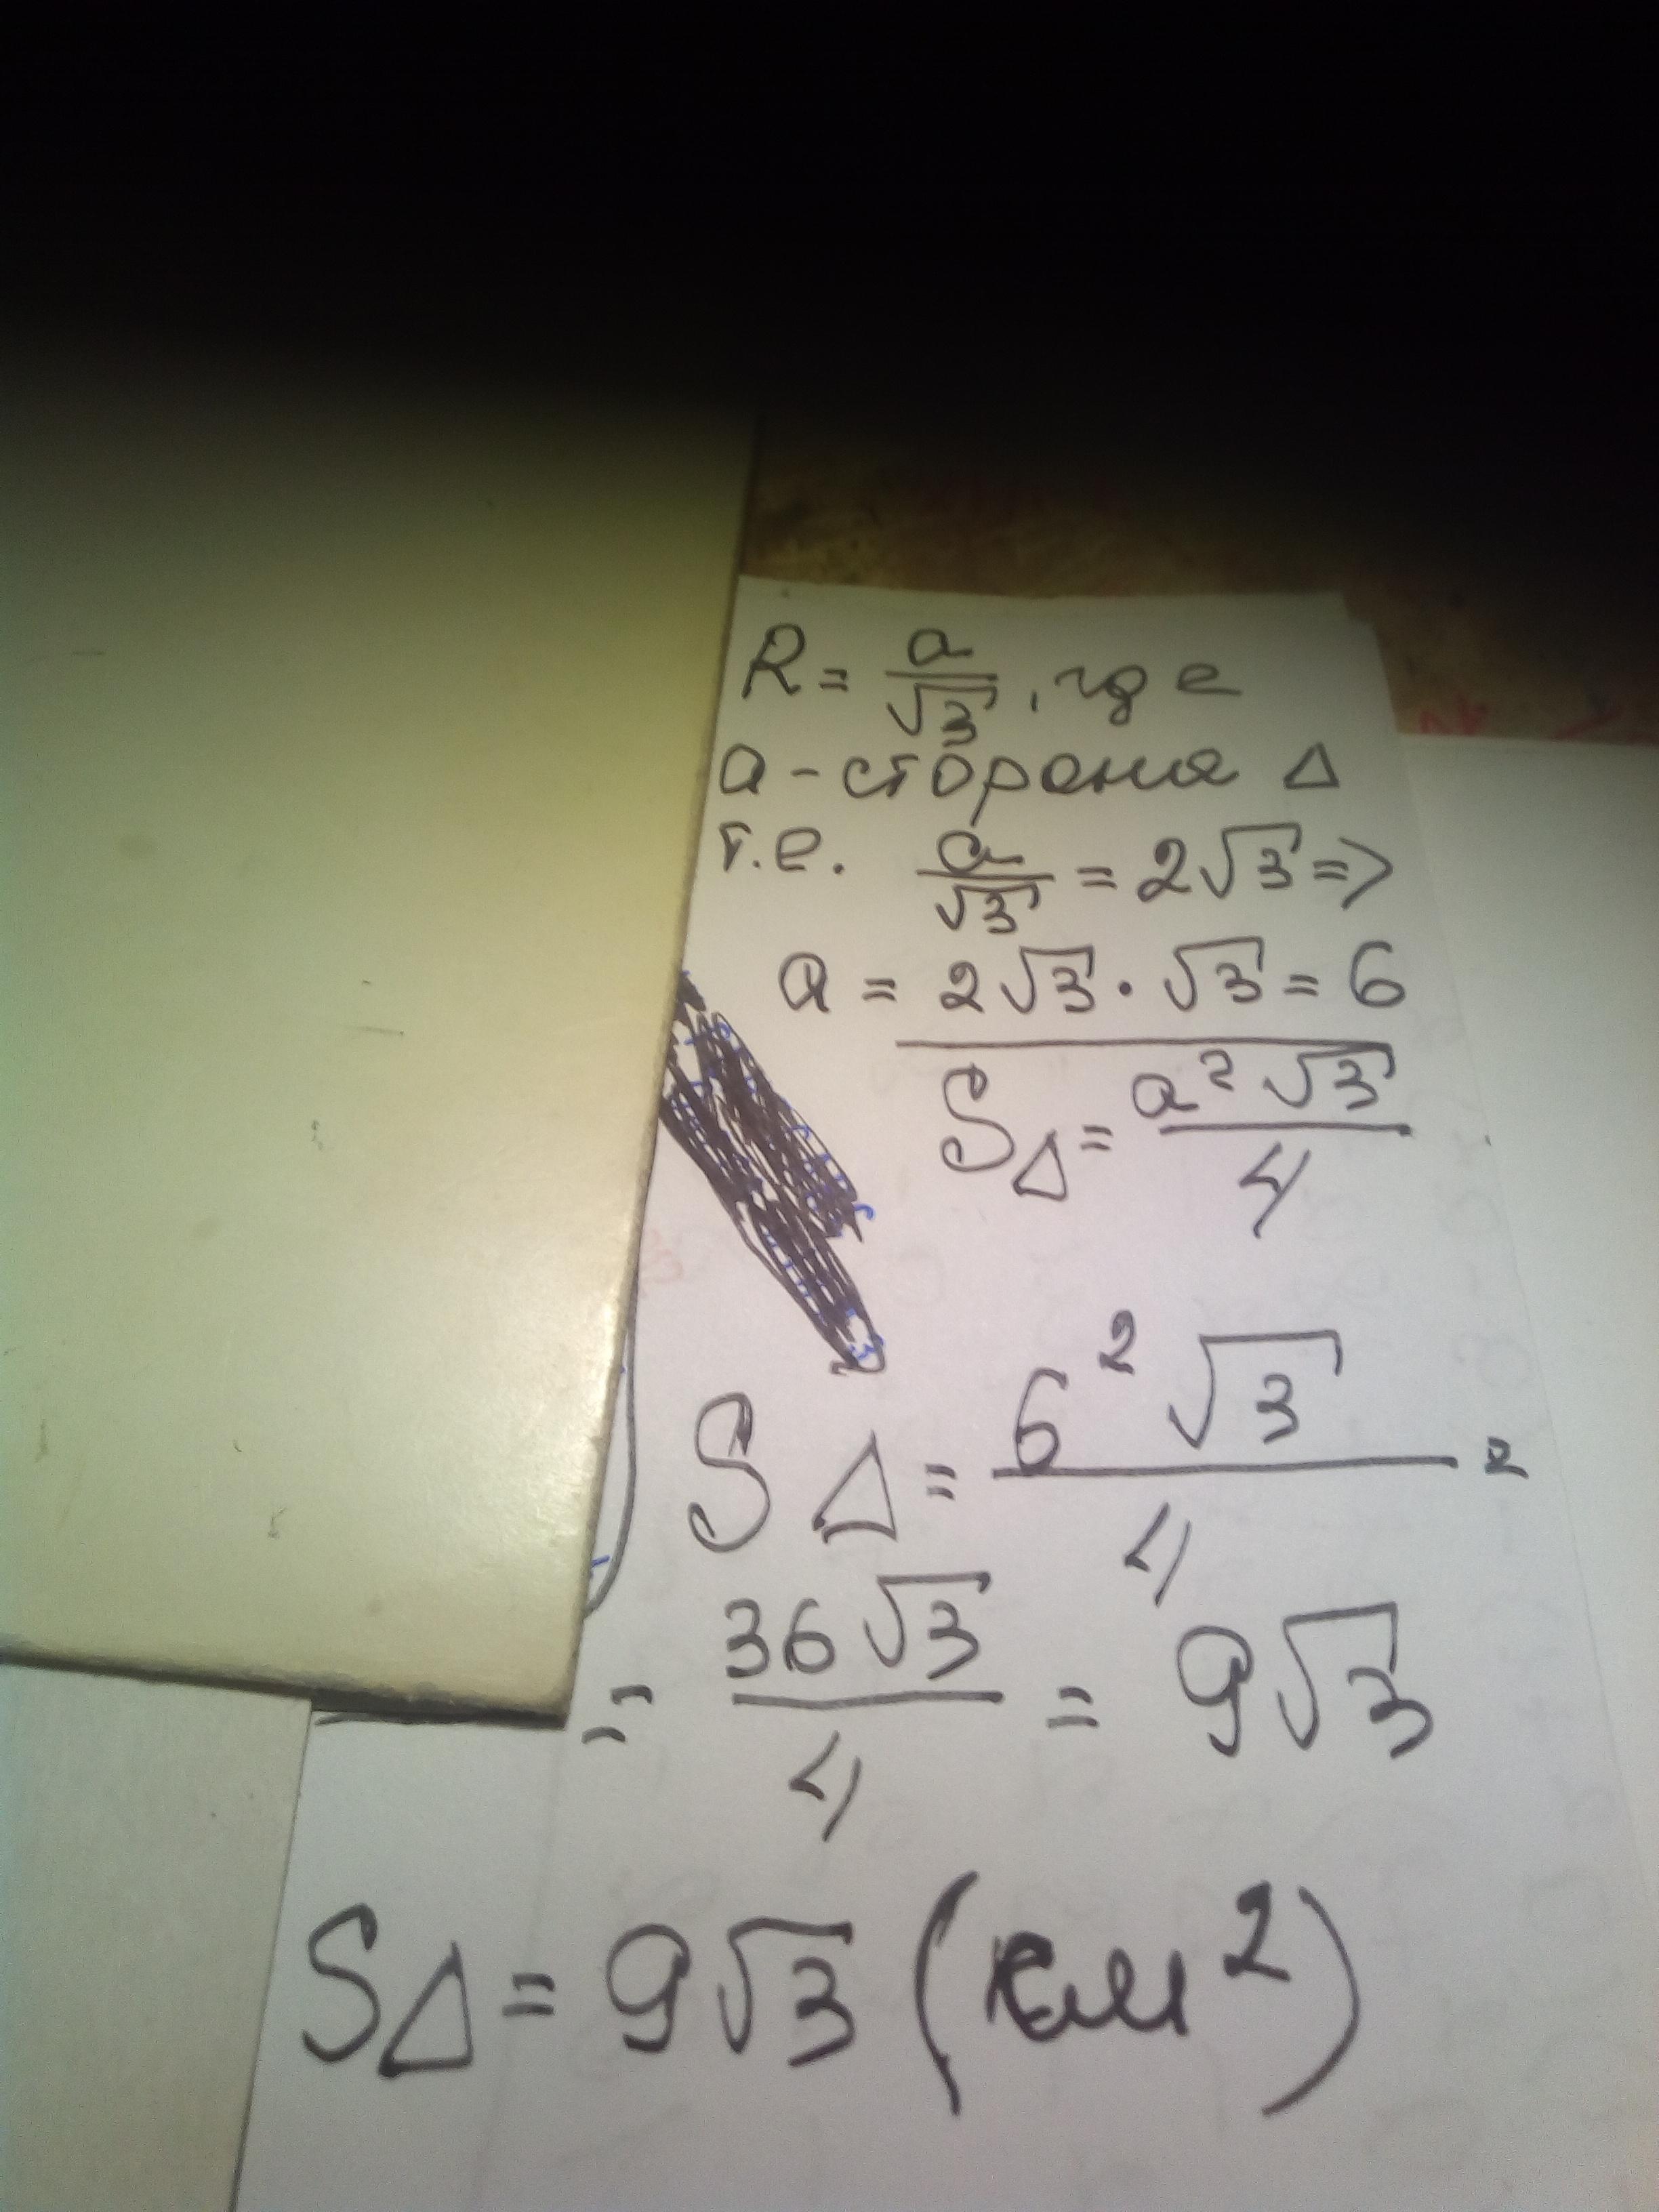 R = a/√3, где
a - сторона Δ
т.е. a/√3 = 2√3 =>
a = 2√3 · √3 = 6
SΔ = a²√3/4
SΔ = 6²√3/4 =
= 36√3/4 = 9√3
SΔ = 9√3 (см²)